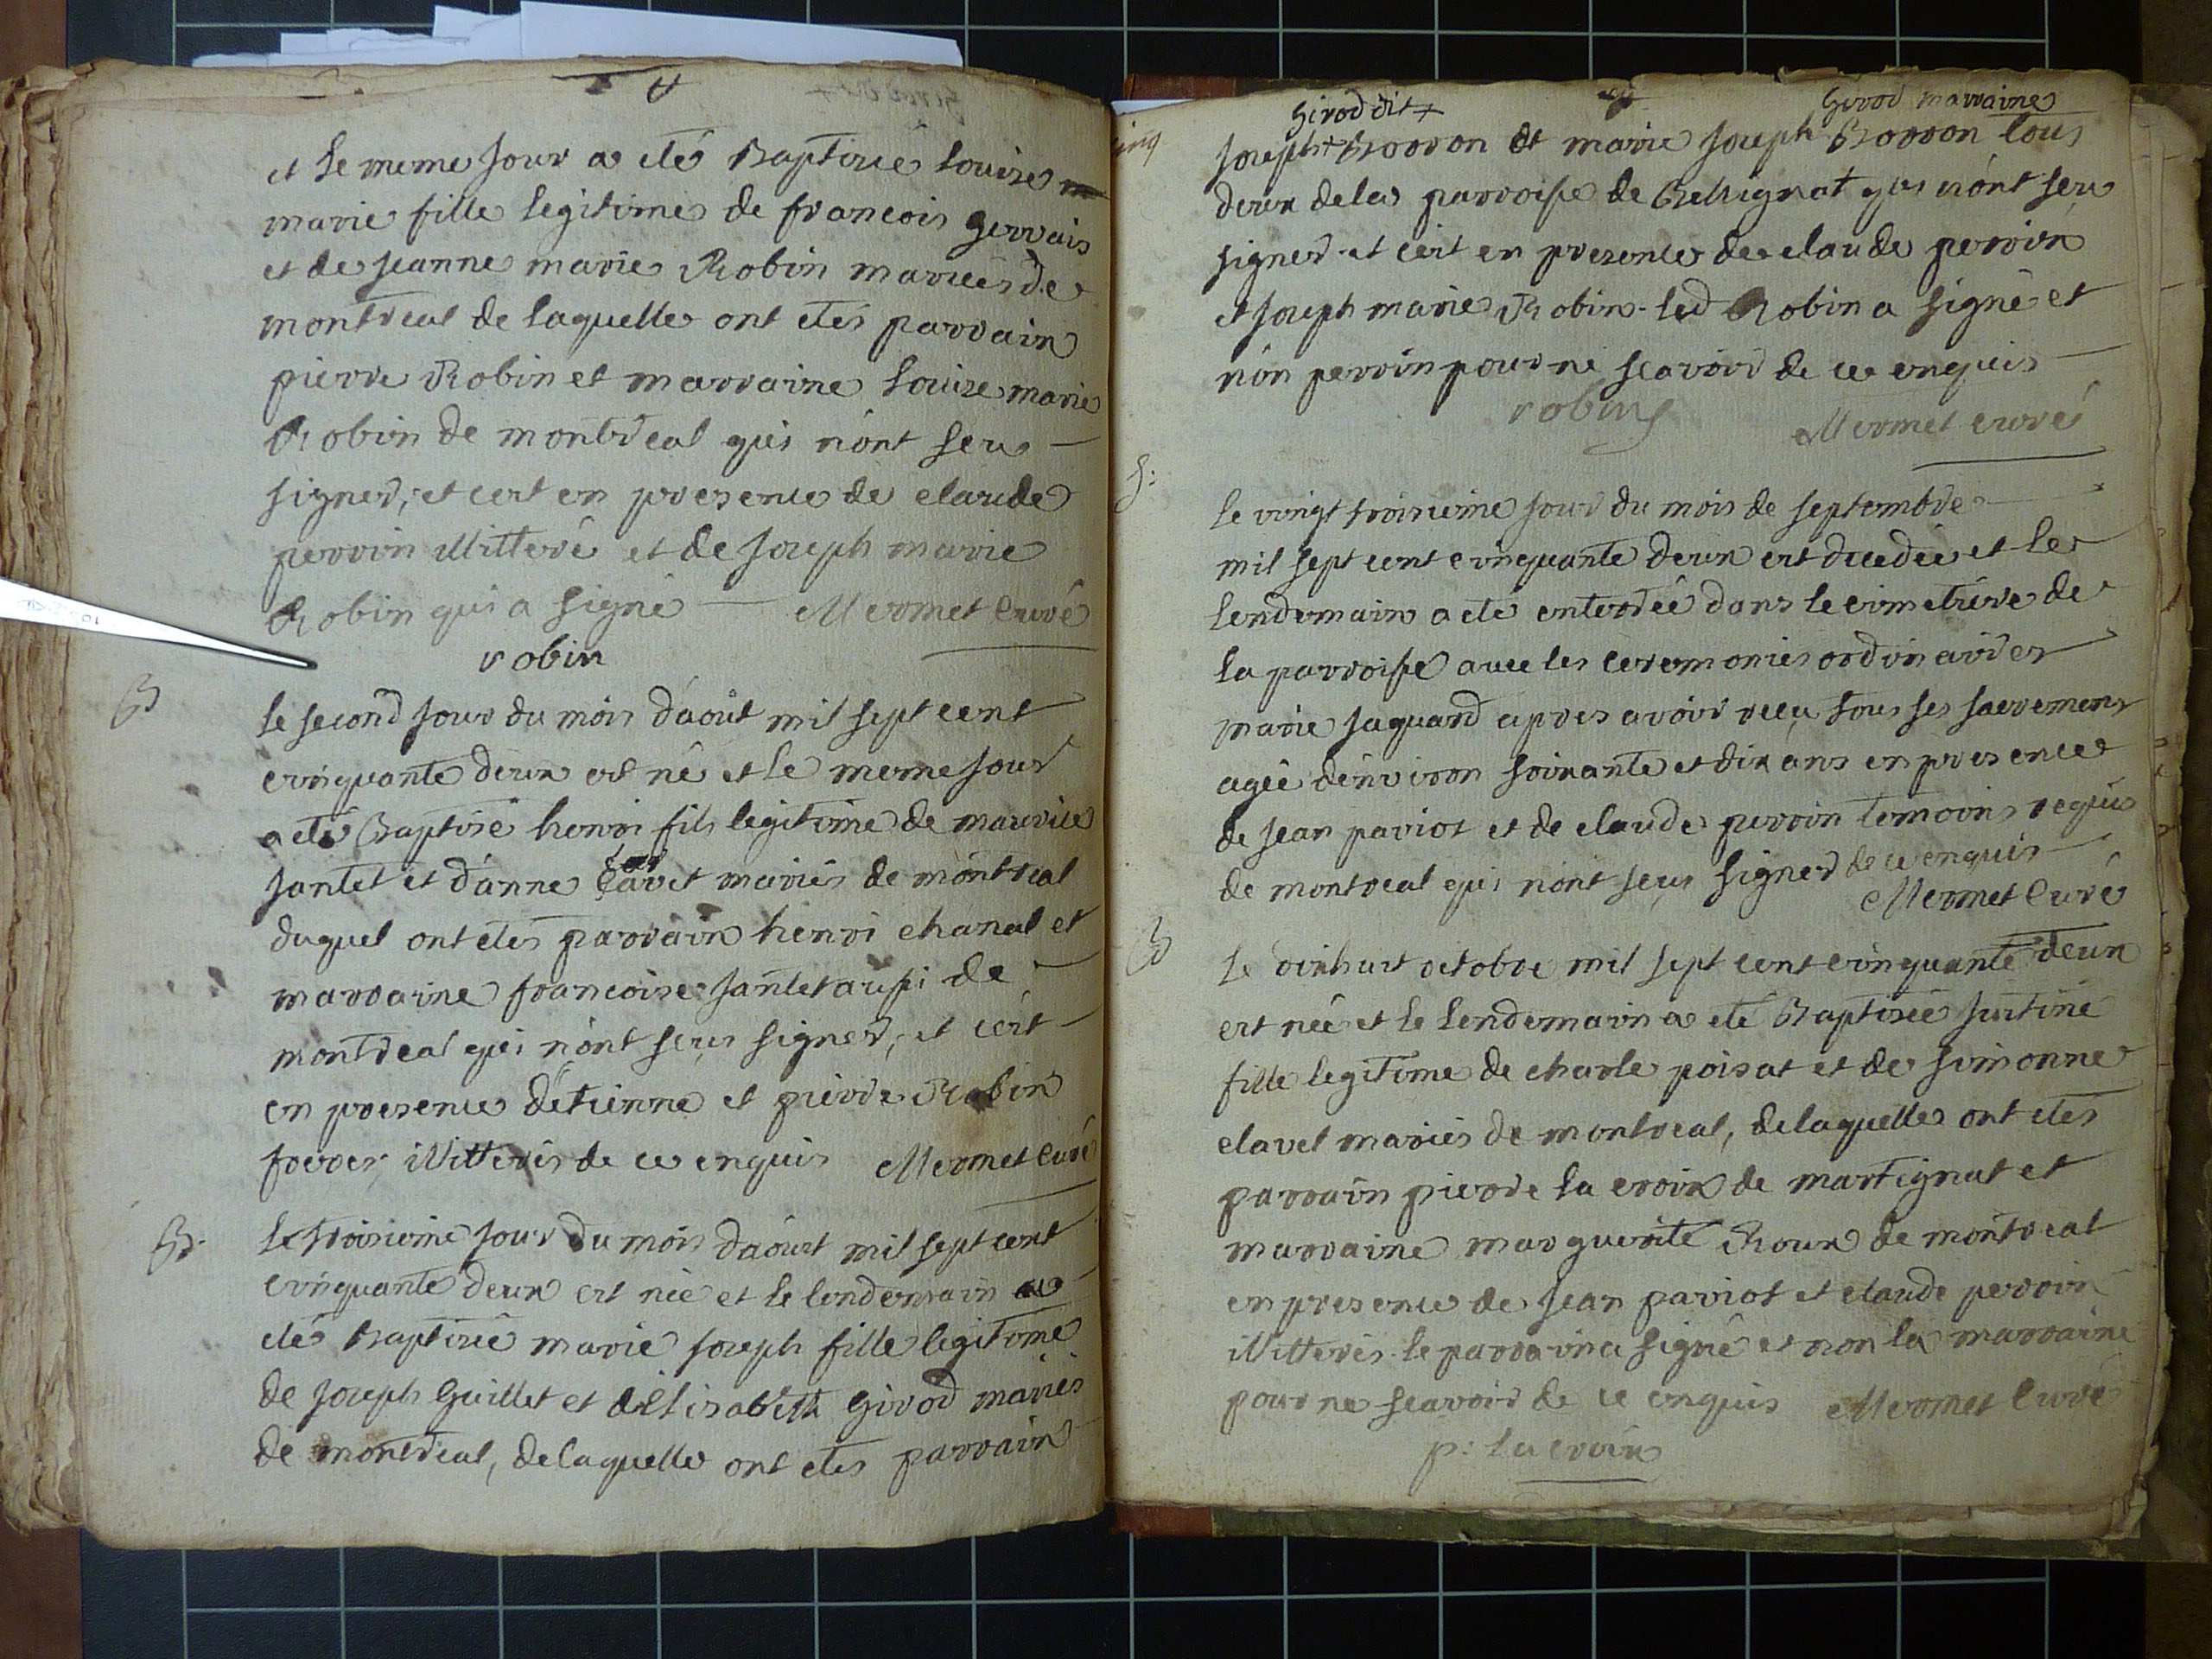 et le meme jour a eté Baptisée louise
marie fille legitime de francois gervais
et de jeanne marie Robin mariées de
montreal de laquelle ont etés parrain
pierre Robin et marraine louise marie
Robin de montreal qui n'ont seu
signer, et c'est en presence de claude
perrin illitteré et de joseph marie
Robin qui a signé Mermet Curé
robin
B
le second jour du mois d'août mil sept cent
cinquante deux est né et le meme jour
a eté Baptisé henri fils legitime de maurice
jantet et d'anne mariés de montreal
duquel ont etés parrain henri chanal et
marraine francoise jantet aussi de
montreal qui n'ont seus signer, et c'est
en presence d'etienne et pierre Robin
freres, illiterés de ce enquis Mermet Curé
B.
le troisieme jour du mois d'aoust mil sept cent
cinquante deux est née et le lendemain a
eté Baptisée marie joseph fille legitime
de joseph Guillet et d'Elisabeth Girod mariés
de montreal, de laquelle ont etés parrain
Girod dit +
Girod marraine
joseph + Borron et marie joseph Borron tous
deux de la parroisse de Bellignat qui n'ont seu
signer et c'est en presence de claude perrin
et joseph marie Robin. led Robin a signé et
non perrin pour ne scavoir de ce enquis
robin
Mermet curé
S:
le vingt troisieme jour du mois de septembre
mil sept cent cinquante deux est decedée et le
lendemain a eté enterrée dans le cimetiere de
la parroisse avec les ceremonies ordinaires
marie jaquard apres avoir reçu tous ses sacremens
agée d'environ soixante et dix ans en presence
de jean pariot et de claude perrin temoins requis
de montreal qui n'ont seus signer de ce enquis
Mermet Curé
B
le dixhuit octobre mil sept cent cinquante deux
est née et le lendemain a eté Baptisée justine
fille legitime de charle poisat et de simonne
clavel mariés de montreal, de laquelle ont etés
parrain pierre la croix de martignat et
marraine marguerite Roux de montreal
en presence de jean pariot et claude perrin
illitterés. le parrain a signé et non la marraine
pour ne scavoir de ce enquis Mermet Curé
p: la croix